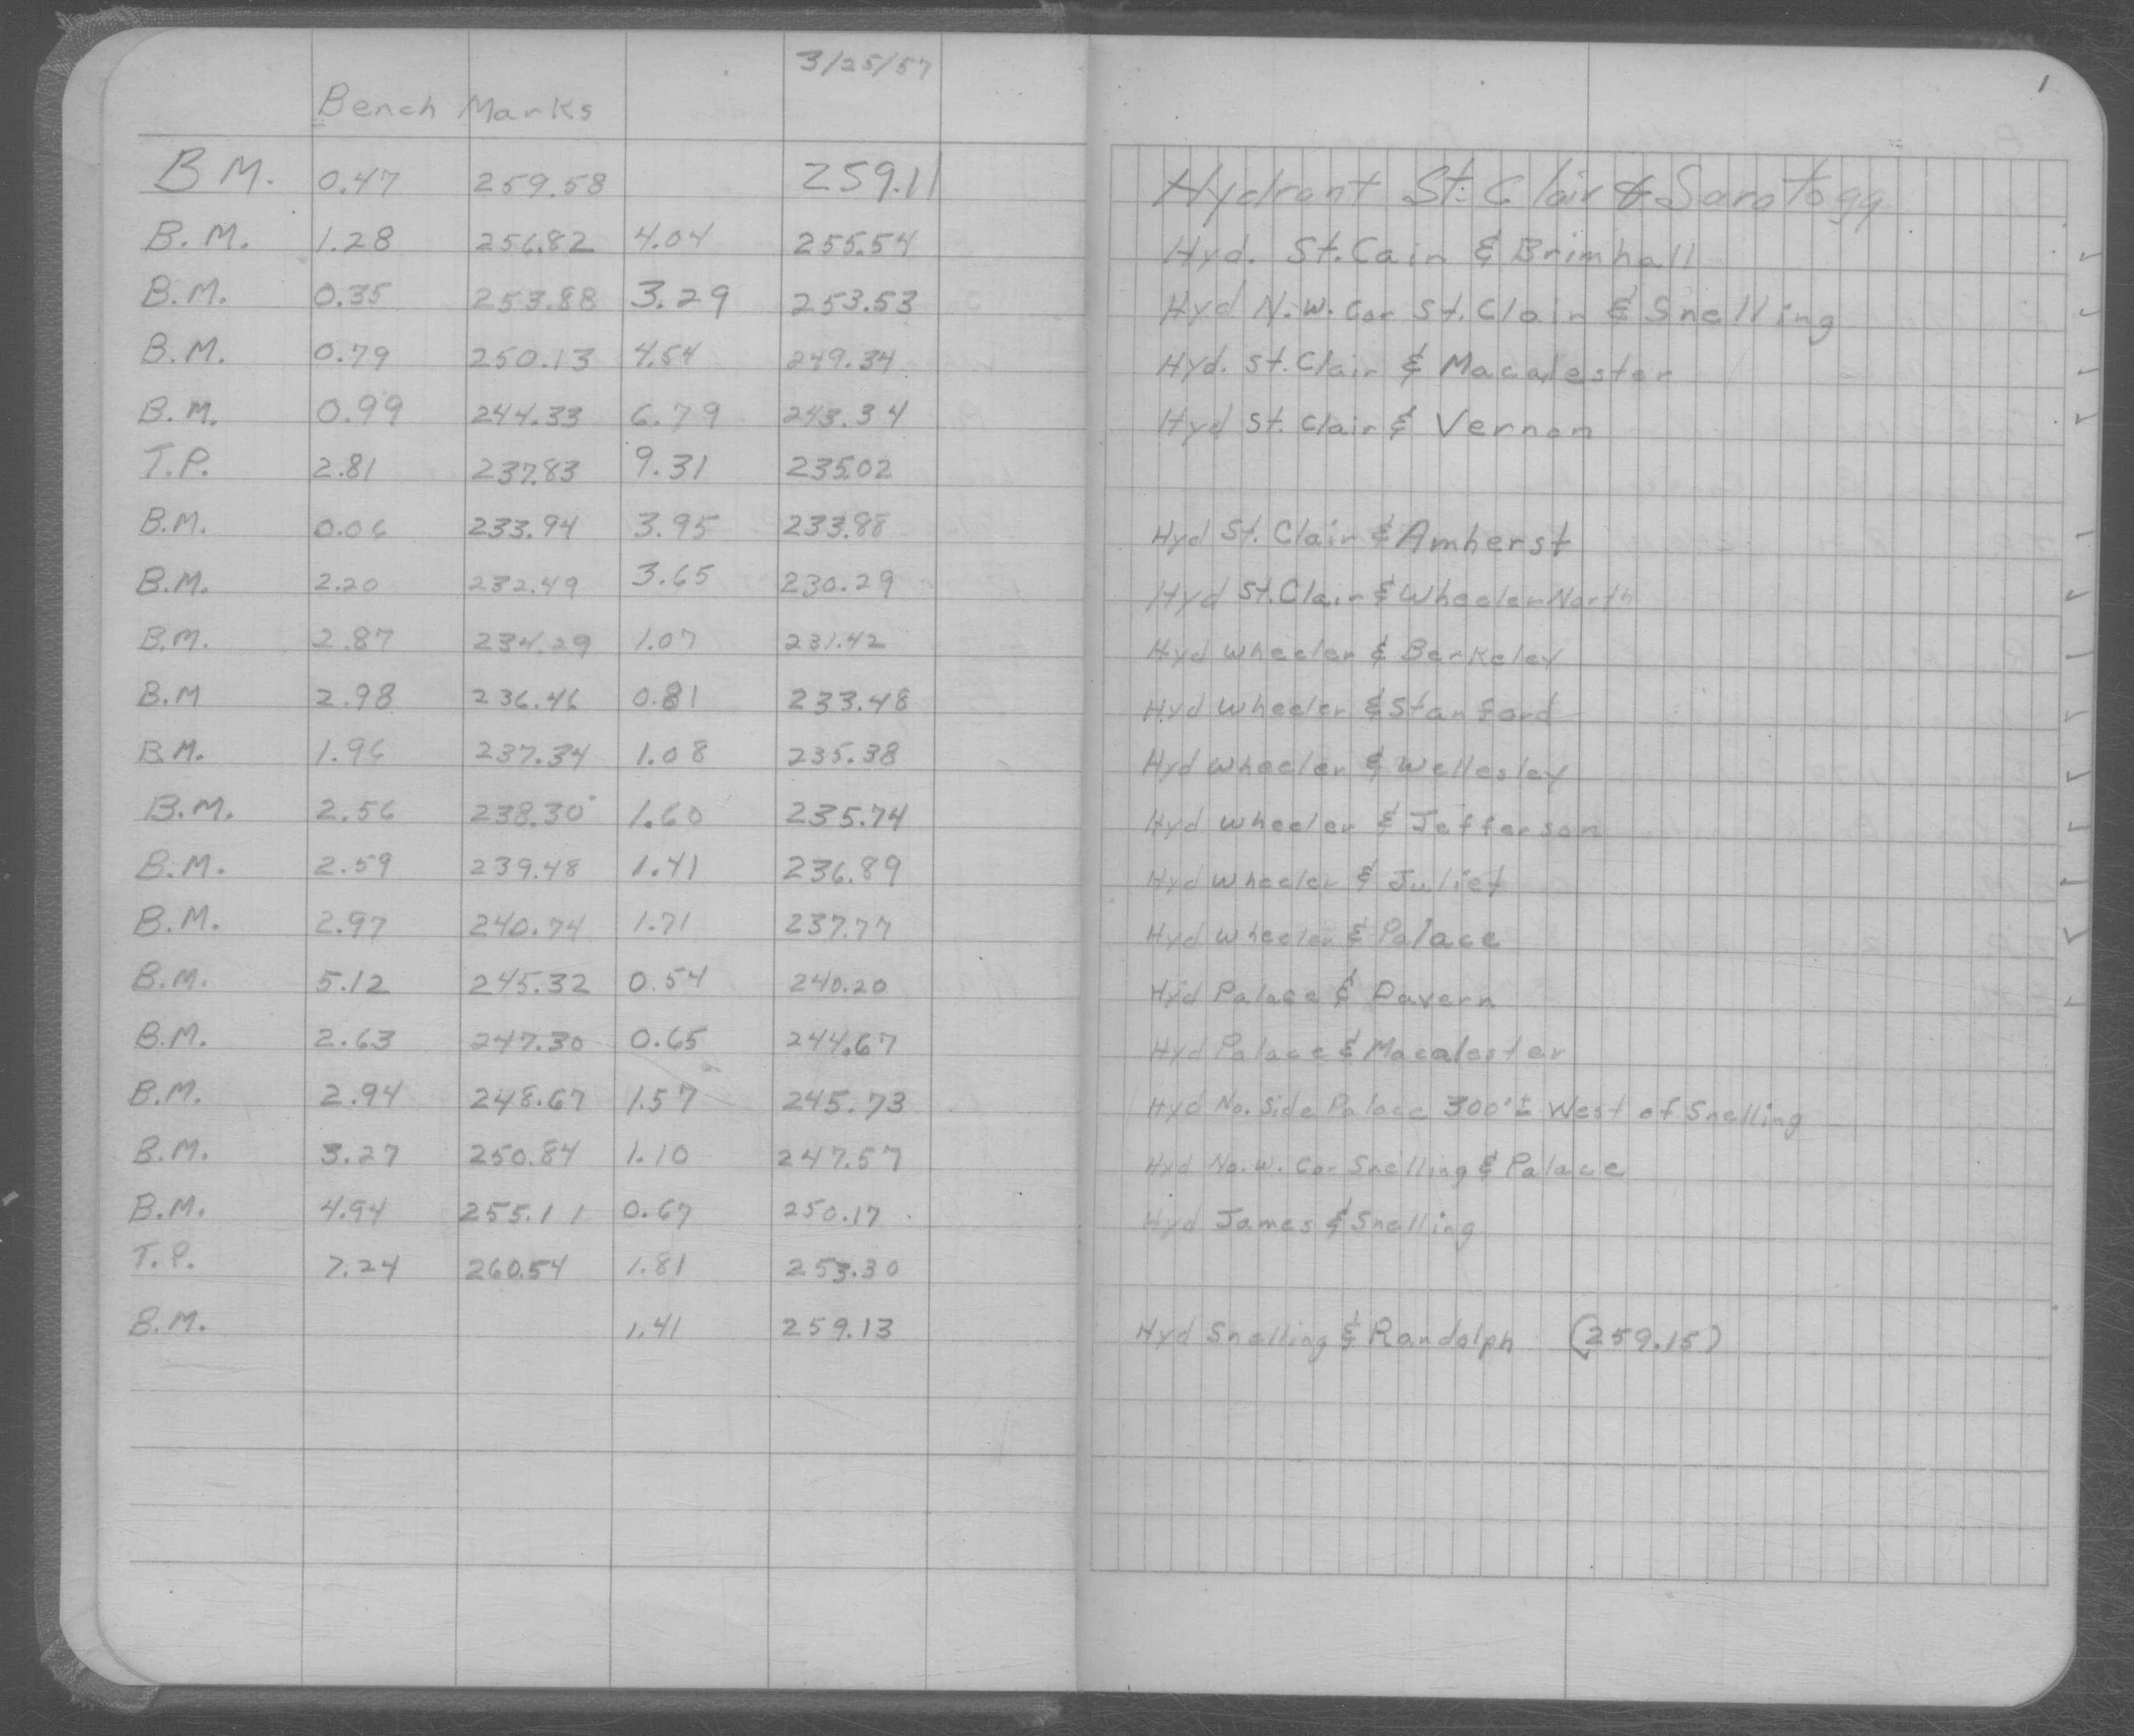 3/25/57
Bench Marks
1
B M. 0.47 259.58 259.11 Hydrant St. Clair & Saratogg
B.M. 1.28 256.82 4.04 255.54 Hyd. St. Cair & Brimhall
B.M. 0.35 253.88 3.29 253.53 Hyd N.W. Cor St. Clair & Snelling
B.M. 0.79 250.13 4.54 249.34 Hyd. St. Clair & Macalester
B.M. 0.99 244.33 6.79 243.34 Hyd St. Clair & Vernon
T.P. 2.81 237.83 9.31 235.02
B.M. 0.06 233.94 3.95 233.88 Hyd St. Clair & Amherst
B.M. 2.20 232.49 3.65 230.29 Hyd St. Clair & Wheeler North
B.M. 2.87 234.29 1.07 231.42 Hyd Wheeler & Berkeley
B.M 2.98 236.46 0.81 233.48 Hyd Wheeler & Stanford
B.M. 1.96 237.34 1.08 235.38 Hyd Wheeler & Wellesley
B.M. 2.56 238.30 1.60 235.74 Hyd Wheeler & Jefferson
B.M. 2.59 239.48 1.41 236.89 Hyd Wheeler & Juliet
B.M. 2.97 240.74 1.71 237.77 Hyd Wheeler & Palace
B.M. 5.12 245.32 0.54 240.20 Hyd Palace & Davern
B.M. 2.63 247.30 0.65 244.67 Hyd Palace & Macalester
B.M. 2.94 248.67 1.57 245.73 Hyd No. Side Palace 300'± West of Snelling
B.M. 3.27 250.84 1.10 247.57 Hyd No. W. Cor Snelling & Palace
B.M. 4.94 255.11 0.67 250.17 Hyd James & Snelling
T.P. 7.24 260.54 1.81 253.30
B.M. 1.41 259.13 Hyd Snelling & Randolph (259.15)